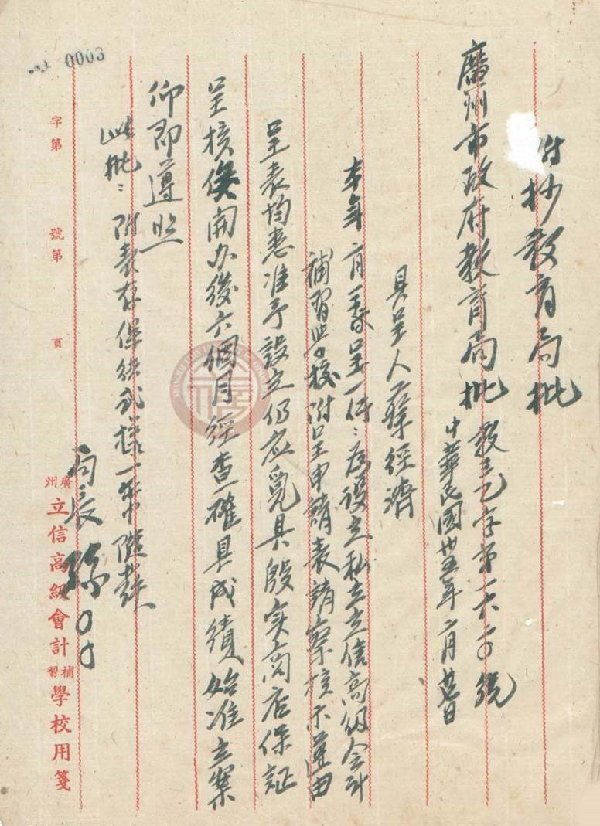 附抄教育局批
廣州市政府教育局批 教三乙字第一六二〇號
中華民國卅五年 月 日
具呈人 蔡經濟
本年 月 日呈一件：為設立私立立信高級会計
補習學校附呈申請表請察核示遵由
呈表均悉准予設立仍應覓具殷实商店保証
呈核俟開办後六個月経查確具成績始准立案
仰即遵照
此批：附表存保結式樣一紙隨發
局長 〇〇
0003
字第 號第 頁
廣州立信高級會計補習學校用箋